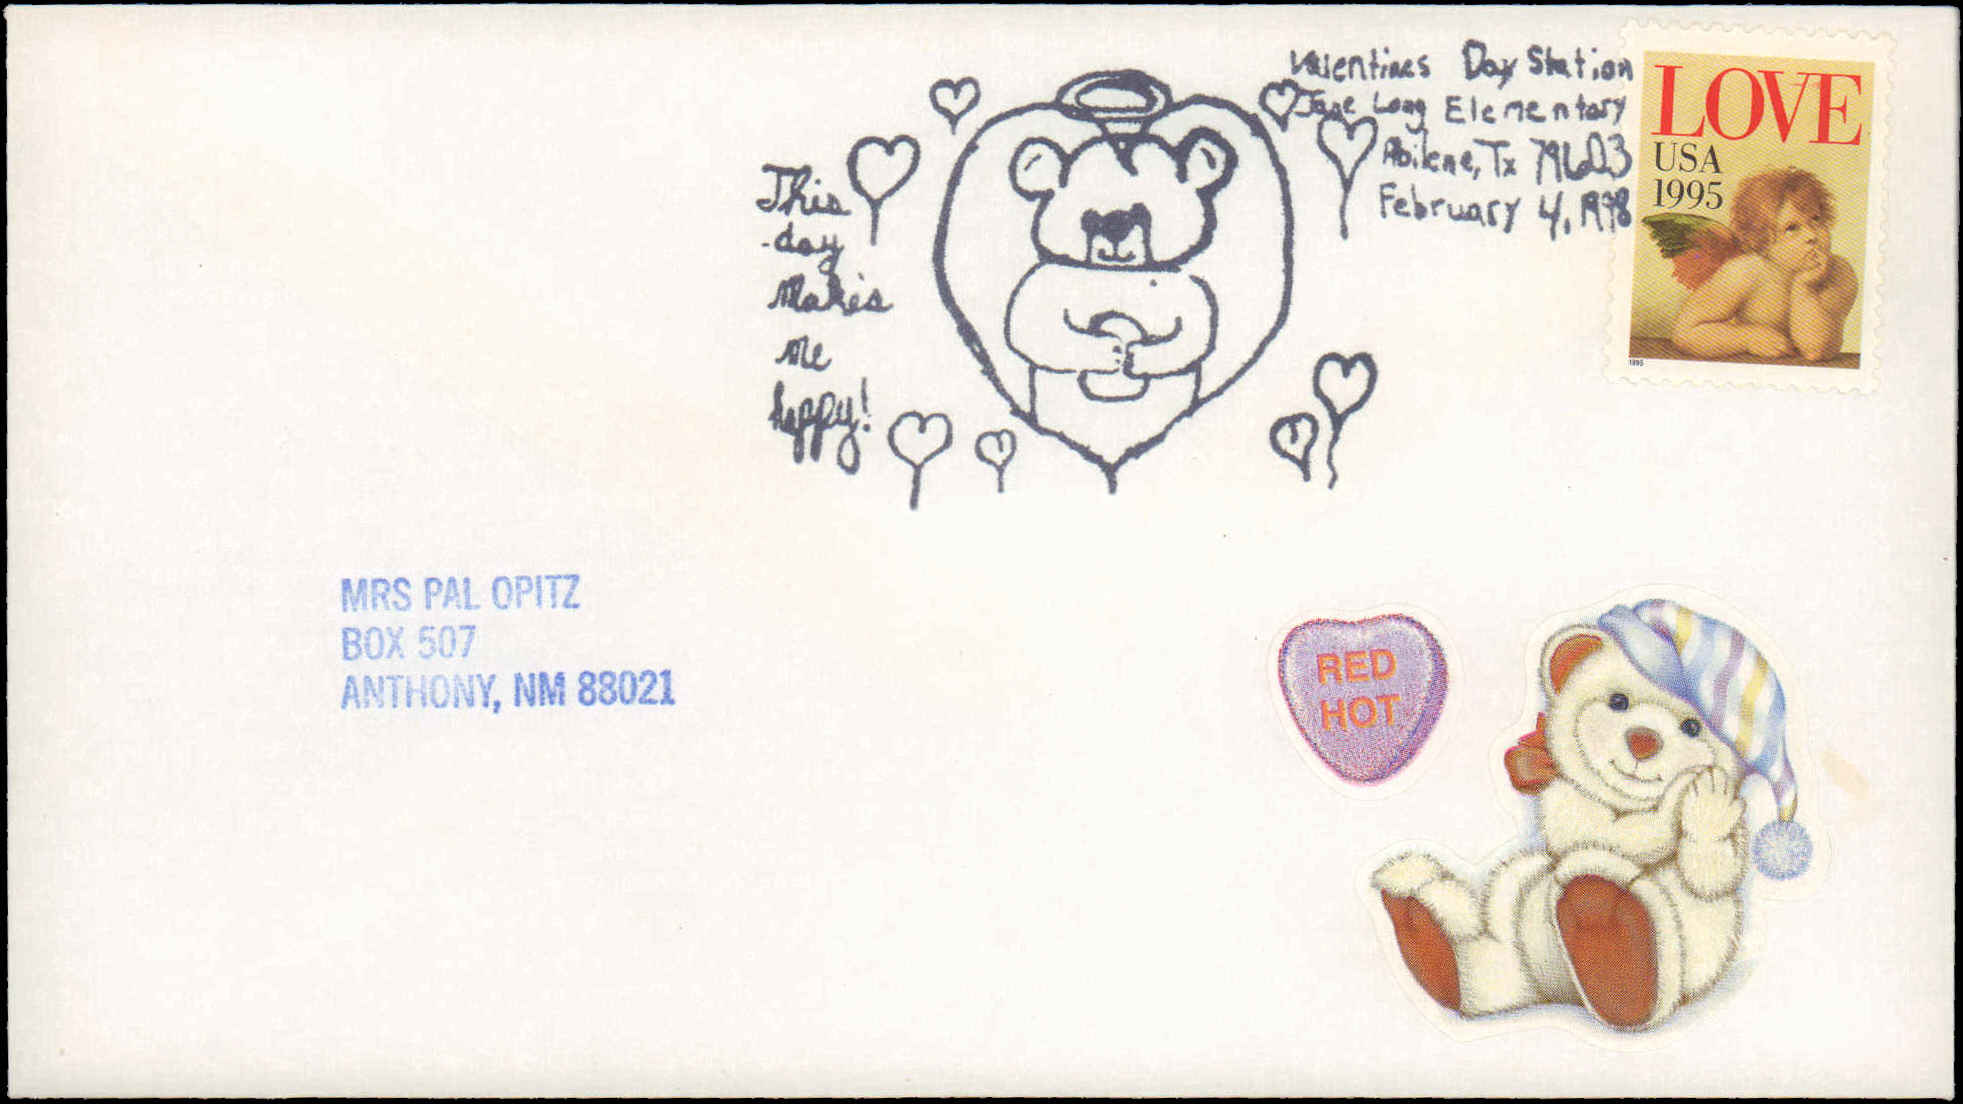 Valentines Day Station
Jane Long Elementary
Abilene, Tx 79603
February 4, 1998
This
day
Makes
Me
happy!
LOVE
USA
1995
1995
MRS PAL OPITZ
BOX 507
ANTHONY, NM 88021
RED
HOT